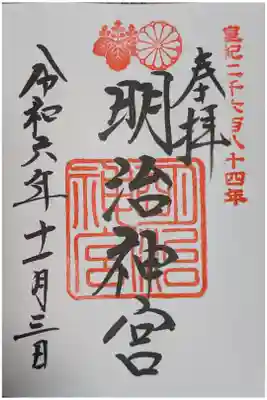 皇紀二千六百八十四年
奉拝
明治神宮
令和六年十一月三日
明治神宮